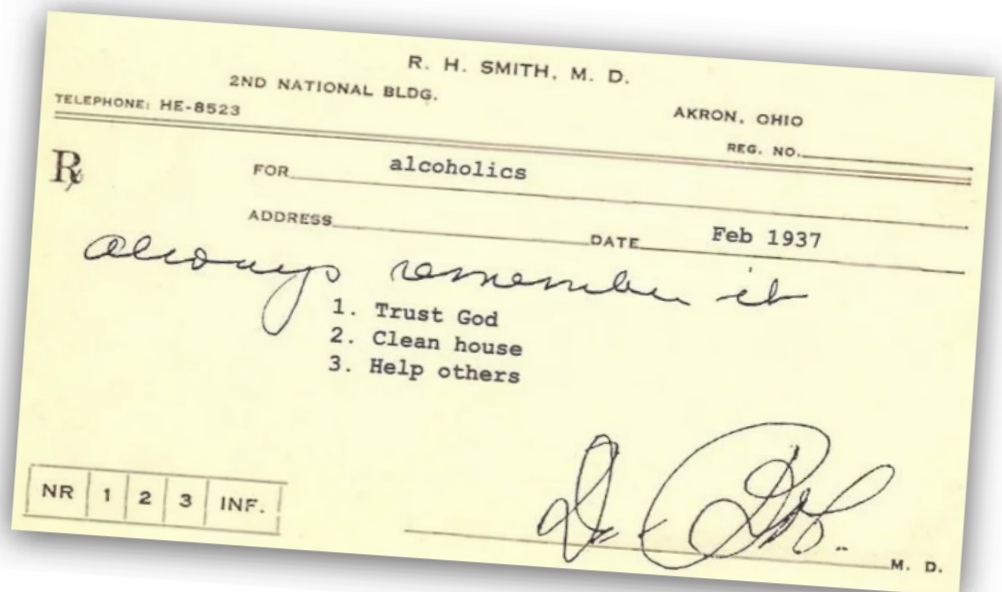 R. H. SMITH, M. D.
2ND NATIONAL BLDG.
AKRON, OHIO
TELEPHONE: HE-8523
REG. NO.
℞
FOR alcoholics
ADDRESS DATE Feb 1937
always remember it
1. Trust God
2. Clean house
3. Help others
NR 1 2 3 INF.
Dr. Bob. M. D.